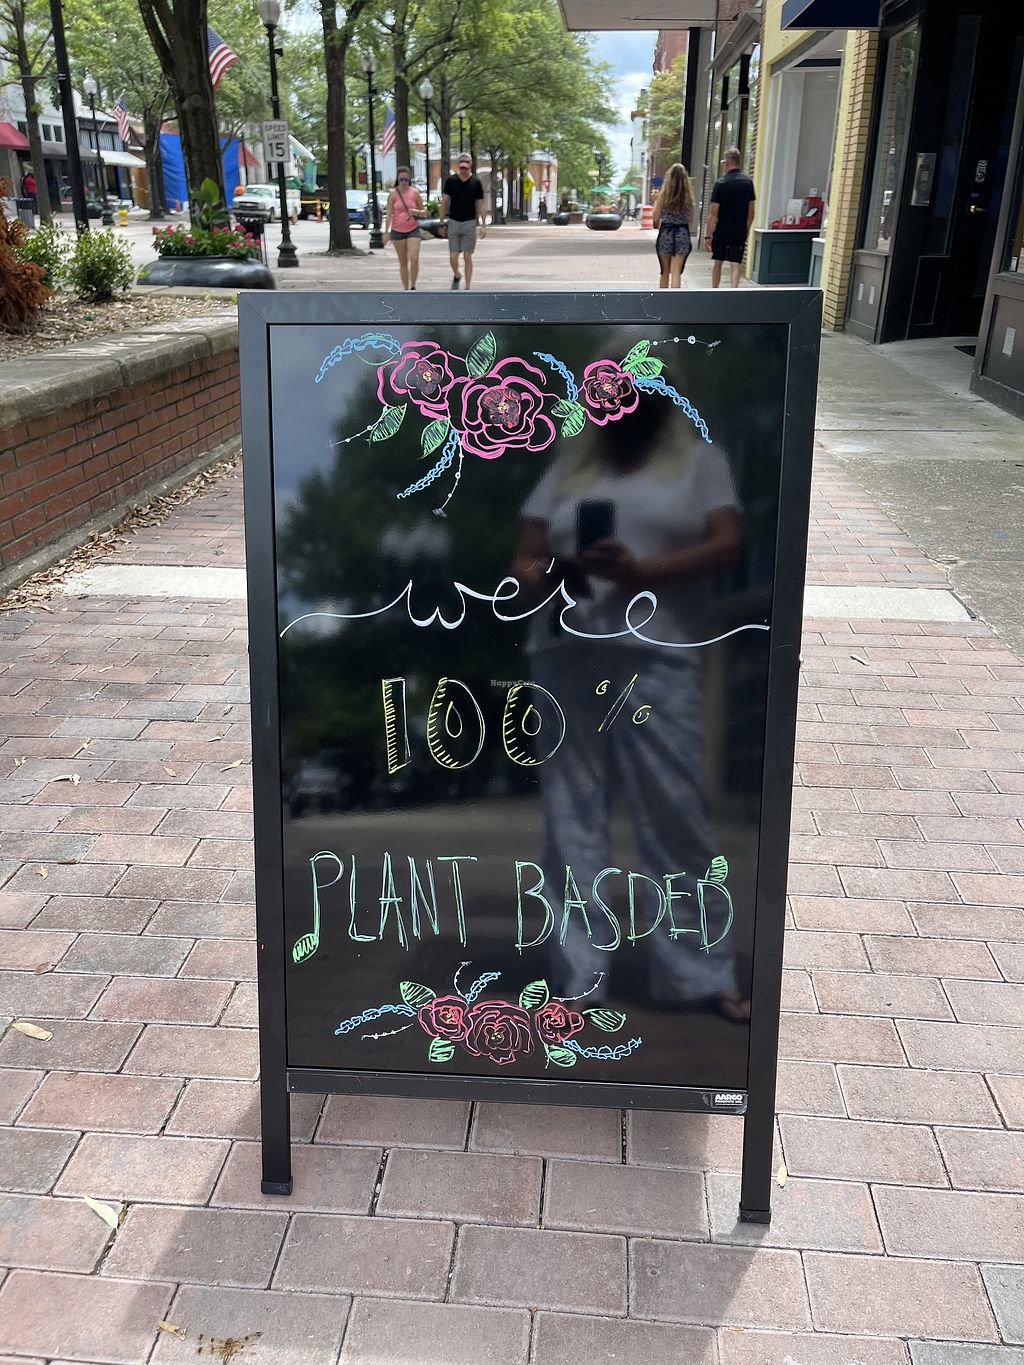 SPEED
LIMIT
15
we're
HappyCow
100%
PLANT BASDED
AARCO
PRODUCTS INC.